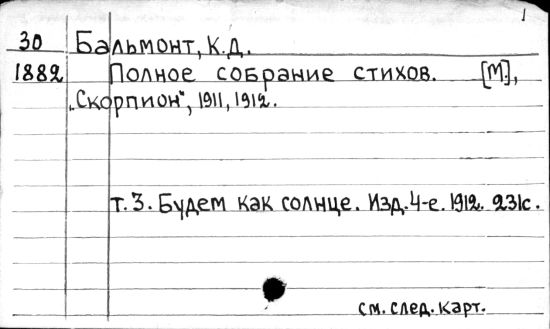 1
30 Бальмонт, К.Д.
1882 Полное собрание стихов. [М.],
„Скорпион", 1911, 1912.
т. 3. Будем как солнце. Изд. 4-е. 1912. 231с.
см. след. карт.